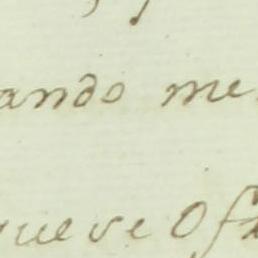 ando me
ueve Of